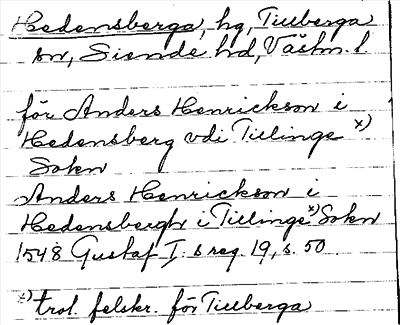 Hedensberga, hg, Tillberga
sn, Siende hd, Västm. l.
för Anders Henrickson i
Hedensberg vdi Tillinge x)
Sokn
Anders Henrickson i
Hedensbergh i Tillinge x) Sokn
1548 Gustaf I:s reg. 19, s. 50.
x) trol. felskr. för Tillberga